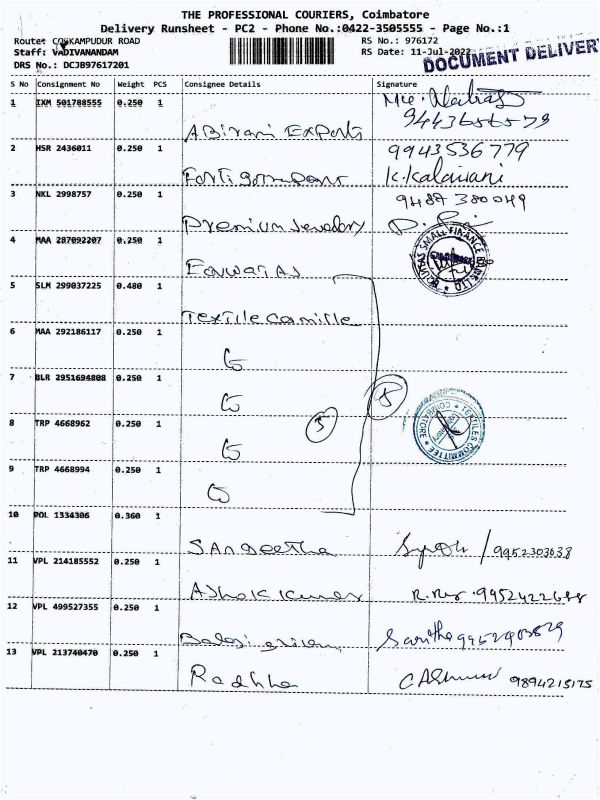 THE PROFESSIONAL COURIERS, Coimbatore
Delivery Runsheet - PC2 - Phone No.:0422-3505555 - Page No.:1
Route: KAMPUDUR ROAD RS No.: 976172
Staff: VADIVANANDAM RS Date: 11-Jul-2022
DOCUMENT DELIVERY
DRS No.: DCJB97617201
S No Consignment No Weight PCS Consignee Details Signature
1 IXM 501788555 0.250 1
Abirami Exports 9443656579
2 HSR 2436011 0.250 1 9943536779
K.Kalaivani
3 NKL 2998757 0.250 1 9487380049
Premium Jewelory
4 MAA 287092207 0.250 1
SMALL FINANCE
5 SLM 299037225 0.480 1
Textile Comittee
6 MAA 292186117 0.250 1
7 BLR 2951694808 0.250 1
8 TRP 4668962 0.250 1
5
TEXTILES COMMITTEE COIMBATORE
9 TRP 4668994 0.250 1
10 POL 1334306 0.360 1
Sangeetha 9952303638
11 VPL 214185552 0.250 1
Ashok Kumar 9952422688
12 VPL 499527355 0.250 1
Balaji Saritha
13 VPL 213740470 0.250 1
Radhha 9894215175